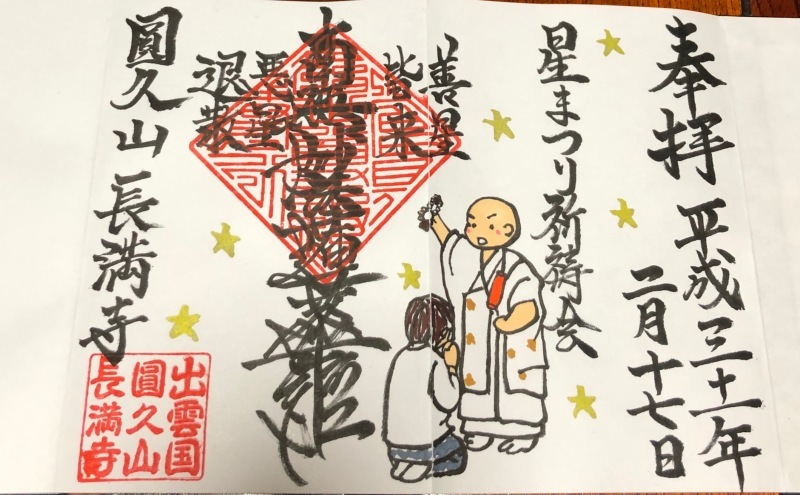 奉拝
平成三十一年
二月十七日
星まつり祈祷会
善星
皆来
南無妙法蓮華経
悪星
退散
圓久山
長満寺
出雲国
圓久山
長満寺